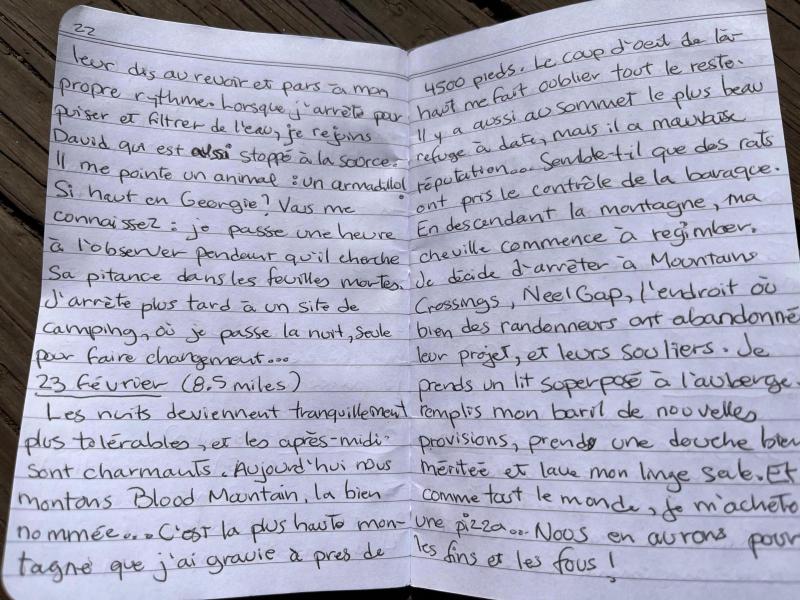 22
leur dis au revoir et pars à mon
propre rythme. Lorsque j'arrête pour
puiser et filtrer de l'eau, je rejoins
David qui est aussi stoppé à la source.
Il me pointe un animal : un armadillo!
Si haut en Georgie? Vous me
connaissez : je passe une heure
à l'observer pendant qu'il cherche
sa pitance dans les feuilles mortes.
J'arrête plus tard à un site de
camping, où je passe la nuit, seule
pour faire changement...
23 février (8.5 miles)
Les nuits deviennent tranquillement
plus tolérables, et les après-midi
sont charmants. Aujourd'hui nous
montons Blood Mountain, la bien
nommée... C'est la plus haute mon-
tagne que j'ai gravie à près de
4500 pieds. Le coup d'oeil de là-
haut me fait oublier tout le reste.
Il y a aussi au sommet le plus beau
refuge à date, mais il a mauvaise
réputation... Semble-t-il que des rats
ont pris le contrôle de la baraque.
En descendant la montagne, ma
cheville commence à regimber.
Je décide d'arrêter à Mountains
Crossings, Neel Gap, l'endroit où
bien des randonneurs ont abandonné
leur projet, et leurs souliers. Je
prends un lit superposé à l'auberge.
remplis mon baril de nouvelles
provisions, prends une douche bien
méritée et lave mon linge sale. Et
comme tout le monde, je m'achète
une pizza... Nous en aurons pour
les fins et les fous!